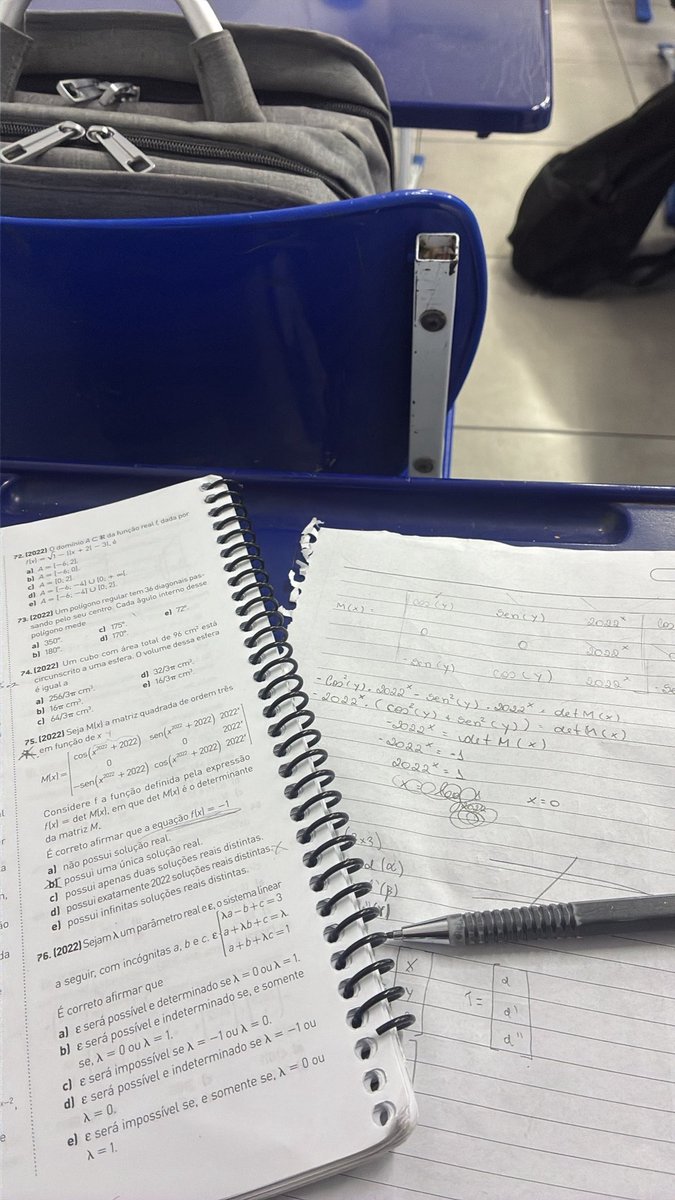 72. (2022) O domínio A ⊂ ℝ da função real f, dada por
f(x) = √1 − ||x + 2| − 3|, é
a) A = [−6; 2].
b) A = [−6; 0].
c) A = [0; 2].
d) A = [−6; −4] ∪ [0; +∞[.
e) A = [−6; −4] ∪ [0; 2].
73. (2022) Um polígono regular tem 36 diagonais pas-
sando pelo seu centro. Cada ângulo interno desse
polígono mede
a) 350°. c) 175°. e) 72°.
b) 180°. d) 170°.
74. (2022) Um cubo com área total de 96 cm² está
circunscrito a uma esfera. O volume dessa esfera
é igual a
a) 256/3π cm³. d) 32/3π cm³.
b) 16π cm³. e) 16/3π cm³.
c) 64/3π cm³.
75. (2022) Seja M(x) a matriz quadrada de ordem três
em função de x
cos(x²⁰²² + 2022) sen(x²⁰²² + 2022) 2022ˣ
M(x) = 0 0 2022ˣ
−sen(x²⁰²² + 2022) cos(x²⁰²² + 2022) 2022ˣ
Considere f a função definida pela expressão
f(x) = det M(x), em que det M(x) é o determinante
da matriz M.
É correto afirmar que a equação f(x) = −1
a) não possui solução real.
b) possui uma única solução real.
c) possui apenas duas soluções reais distintas.
d) possui exatamente 2022 soluções reais distintas.
e) possui infinitas soluções reais distintas.
76. (2022) Sejam λ um parâmetro real e ε, o sistema linear
a seguir, com incógnitas a, b e c. ε:
λa − b + c = 3
a + λb + c = λ
a + b + λc = 1
É correto afirmar que
a) ε será possível e determinado se λ = 0 ou λ = 1.
b) ε será possível e indeterminado se, e somente
se, λ = 0 ou λ = 1.
c) ε será impossível se λ = −1 ou λ = 0.
d) ε será possível e indeterminado se λ = −1 ou
λ = 0.
e) ε será impossível se, e somente se, λ = 0 ou
λ = 1.
cos(y) sen(y) 2022ˣ cos
M(x) = 0 0 2022ˣ
-sen(y) cos(y) 2022ˣ
-cos²(y) . 2022ˣ - sen²(y) . 2022ˣ = det M(x)
-2022ˣ . (cos²(y) + sen²(y)) = det M(x)
-2022ˣ = det M(x)
-2022ˣ = -1
2022ˣ = 1
x=0
X
Y
T =
d
d'
d"